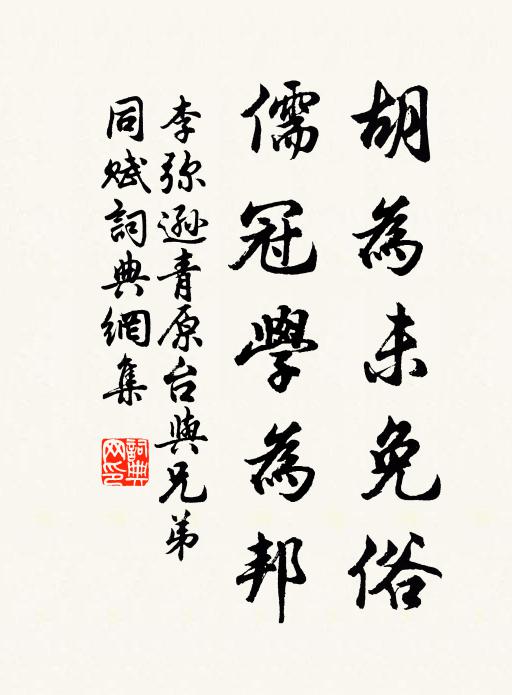 胡為未免俗
儒冠學為邦
李弥遜青原台與兄弟
同賦詞典網集
詞典網印